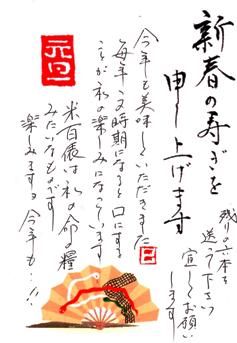 新春の寿ぎを
申し上げます
残りの六本を
送って下さい
宜しくお願い
します
元旦
今年も美味しくいただきました
毎年この時期になると口にする
ことが私の楽しみになっています
米百俵は私の命の糧
みたいなものです
楽しみますョ今年も…!!